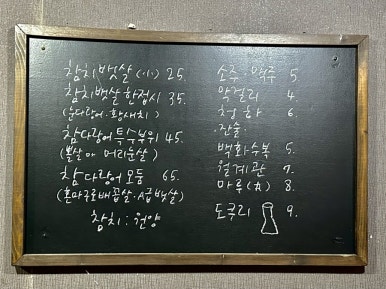 참치뱃살(小) 25.
참치뱃살한접시 35.
(눈다랑어·황새치)
참다랑어특수부위 45.
뽈살 and 머리눈살)
참다랑어모듬 65.
(혼마구로배꼽살·A급뱃살)
참치:원양
소주·맥주 5.
막걸리 4.
청하 6.
잔술.
백화수복 5.
월계관 7.
마루(丸) 8.
도쿠리 9.